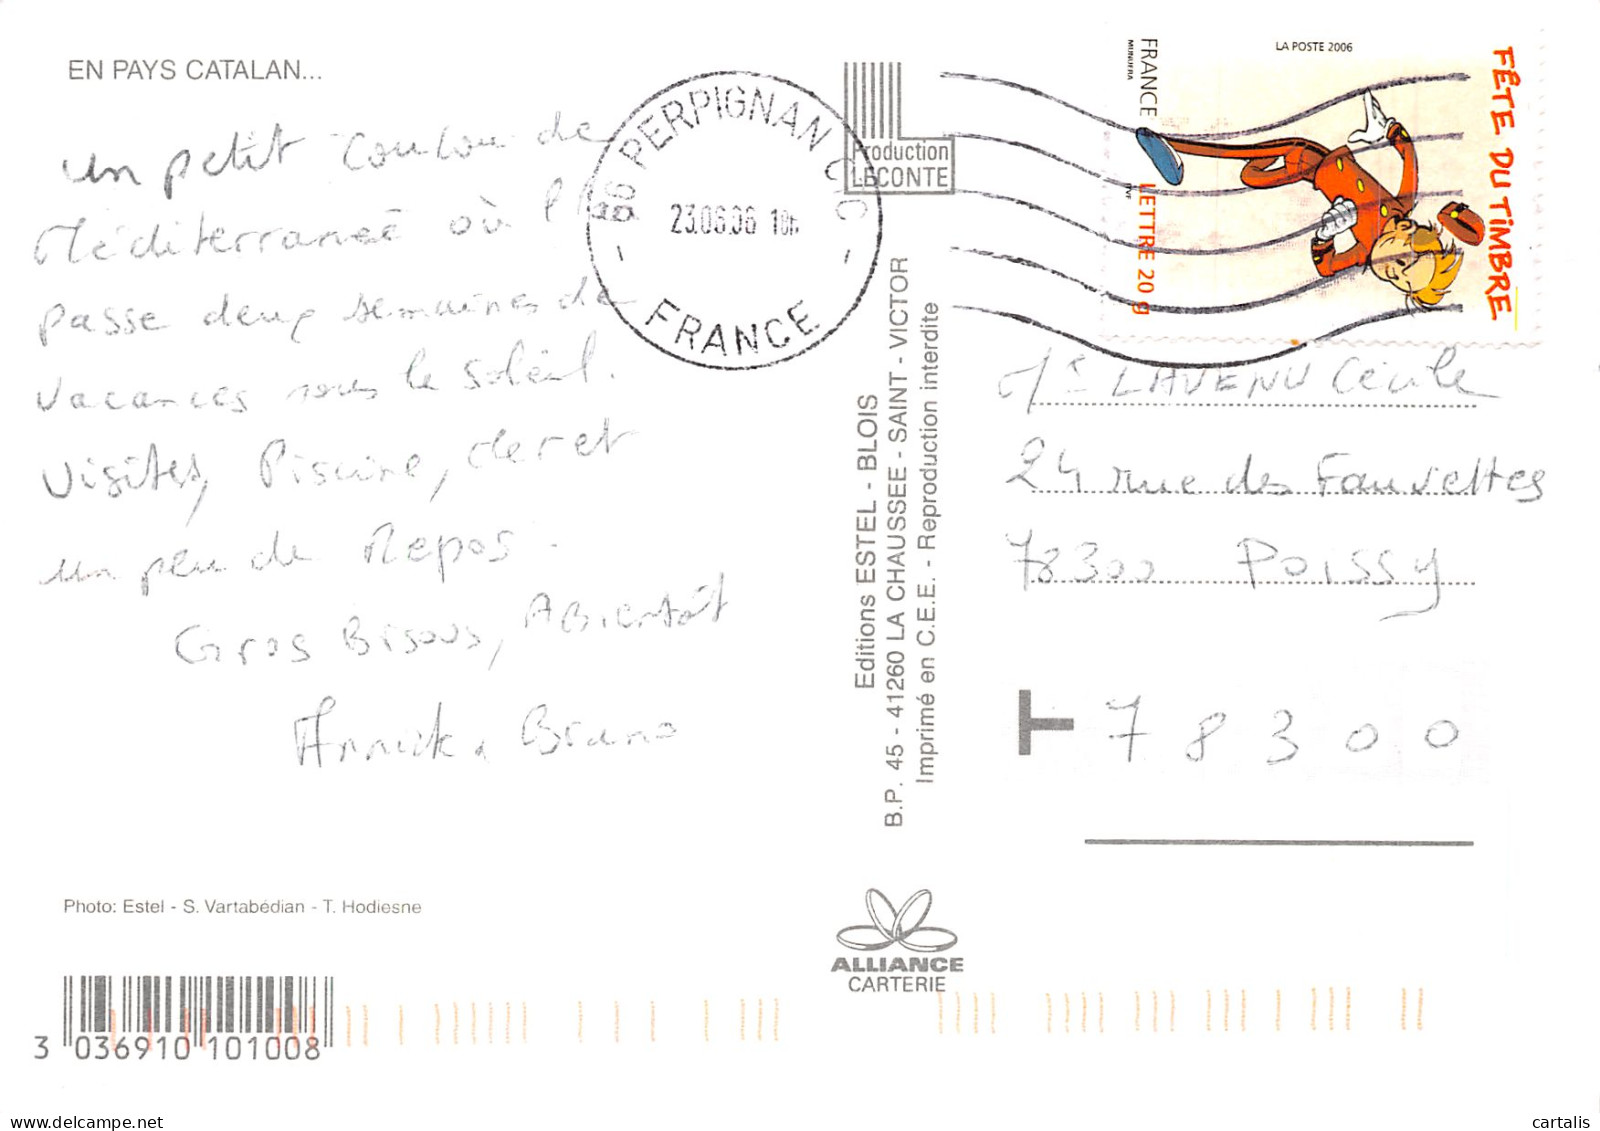 EN PAYS CATALAN...
un petit coucou de
Méditerranée où l'on
passe deux semaines de
vacances sous le soleil.
Visites, Piscine, Mer et
un peu de Repos.
Gros Bisous, A Bientôt
Annick, Bruno
Photo: Estel - S. Vartabédian - T. Hodiesne
3 036910 101008
66 PERPIGNAN CTC
23.06.06 18h
FRANCE
Production
LECONTE
Editions ESTEL - BLOIS
B.P. 45 - 41260 LA CHAUSSEE - SAINT - VICTOR
Imprimé en C.E.E. - Reproduction interdite
ALLIANCE
CARTERIE
LA POSTE 2006
FÊTE DU TIMBRE
FRANCE
LETTRE 20 g
LAVENU Cécile
24 rue des Fauvettes
78300 Poissy
T 78300
cartalis